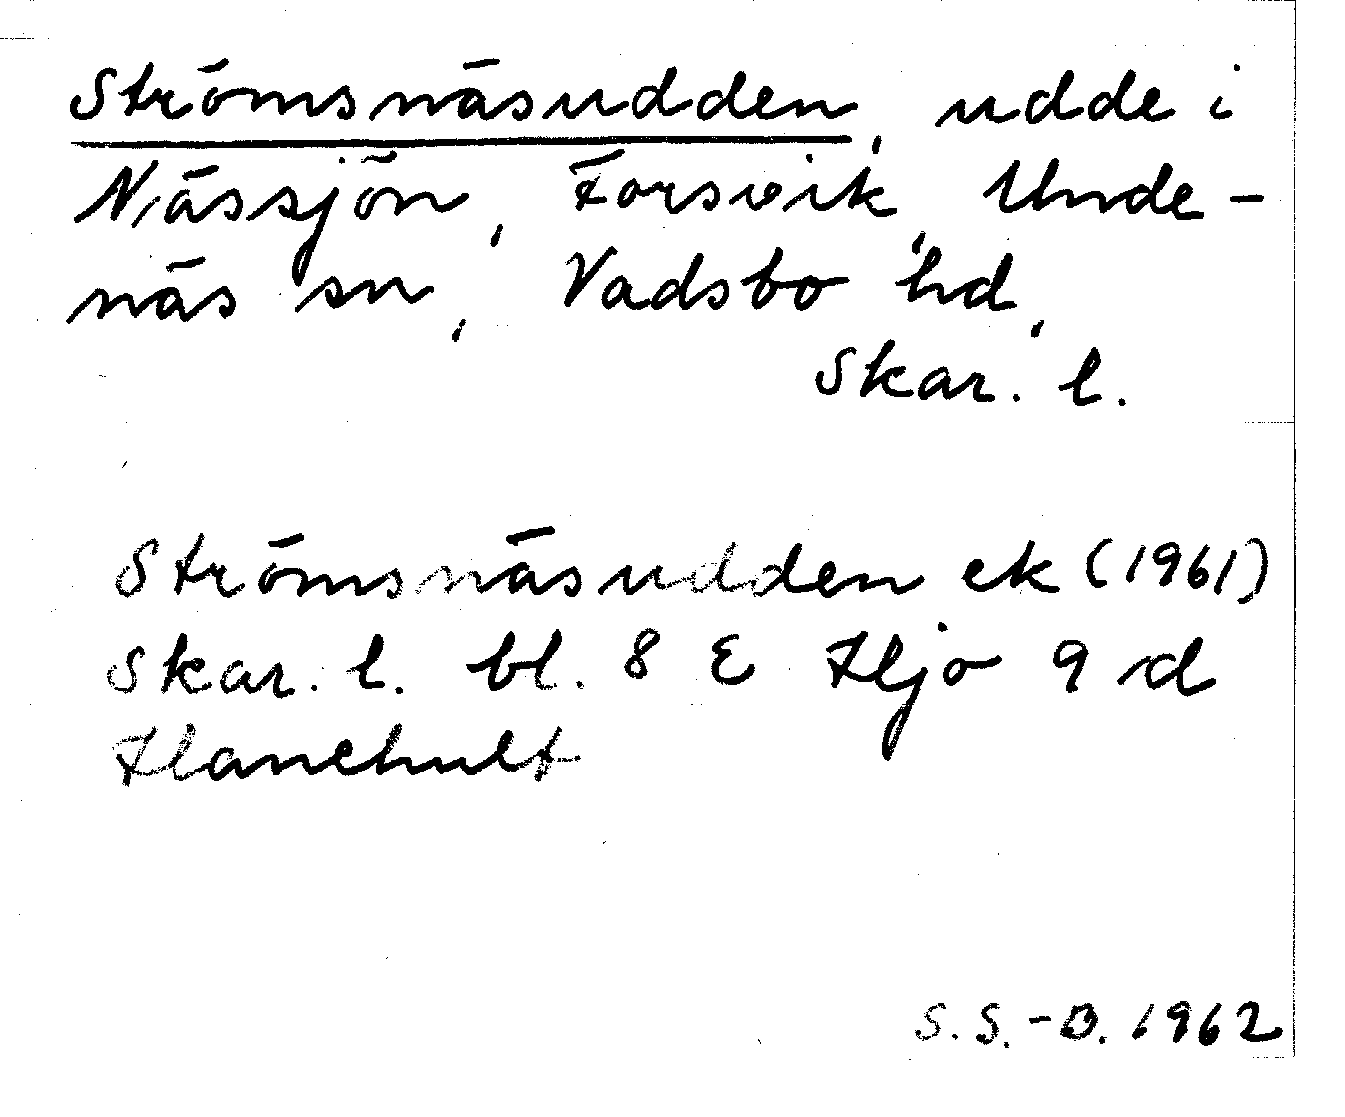 Strömsnäsudden, udde i
Nässjön, Forsvik, Unde-
näs sn, Vadsbo hd,
Skar. l.
Strömsnäsudden ek (1961)
Skar. l. bl. 8 E Hjo 9 d
Hanehult
S. S.-B. 1962